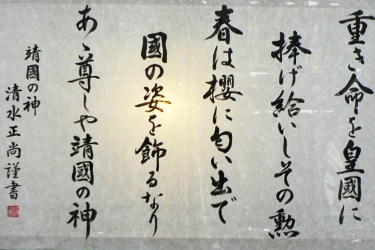 重き命を皇國に
捧げ給いしその勲
春は櫻に匂い出で
國の姿を飾るなり
あゝ尊しや靖國の神
靖國の神
清水正尚謹書